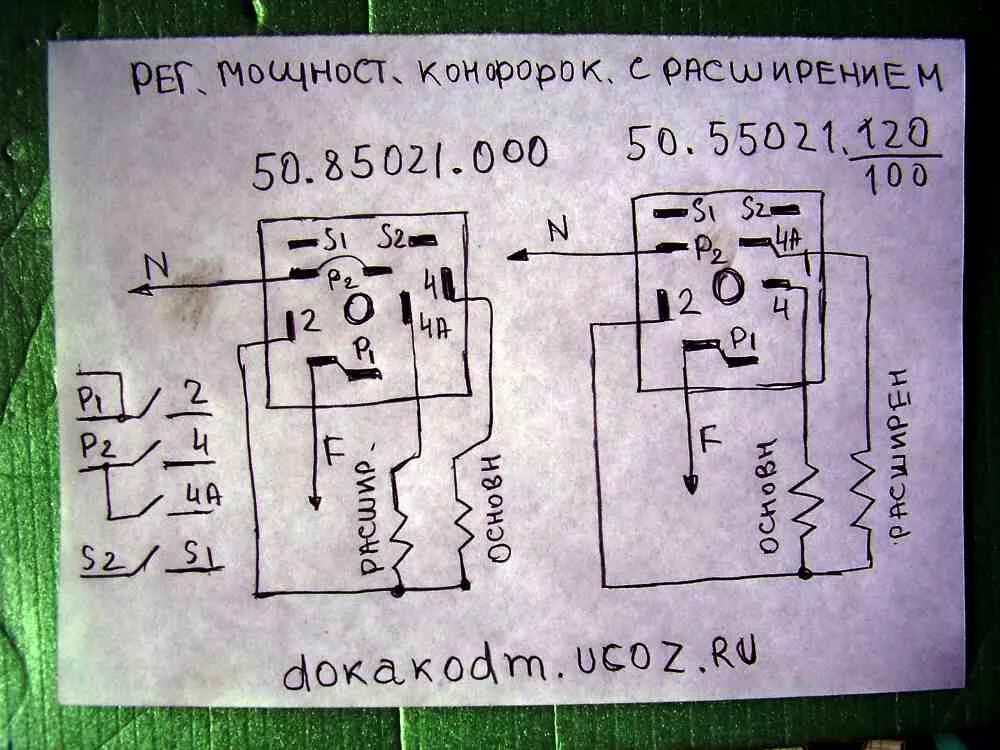 РЕГ. МОЩНОСТ. КОНФОРОК. С РАСШИРЕНИЕМ
50.85021.000
50.55021.120/100
N
S1 S2
P2
4
2
4A
P1
F
РАСШИР.
ОСНОВН
N
S1 S2
P2 4A
2
4
P1
F
ОСНОВН
РАСШИРЕН
P1 2
P2 4
4A
S2 S1
dokakodm.ucoz.RU